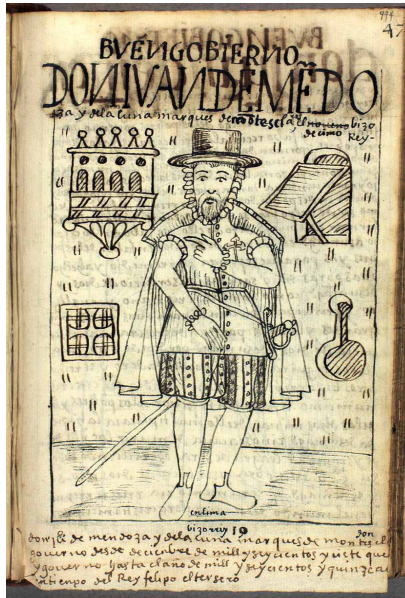 494
47
BVENGOBIERNO
DONIVANDEMĒDO
za y dela luna marques de mōtesclaros noueno bizo
decimo Rey-
en lima
bizorrey 10
don ju° de mendoza y dela luna marques de montescl
don
gouerno desde deciembre de mill y seycientos y ciete que
y gouerno hasta el año de mill y seycientos y quinze a
en tienpo del Rey felipo el tersero